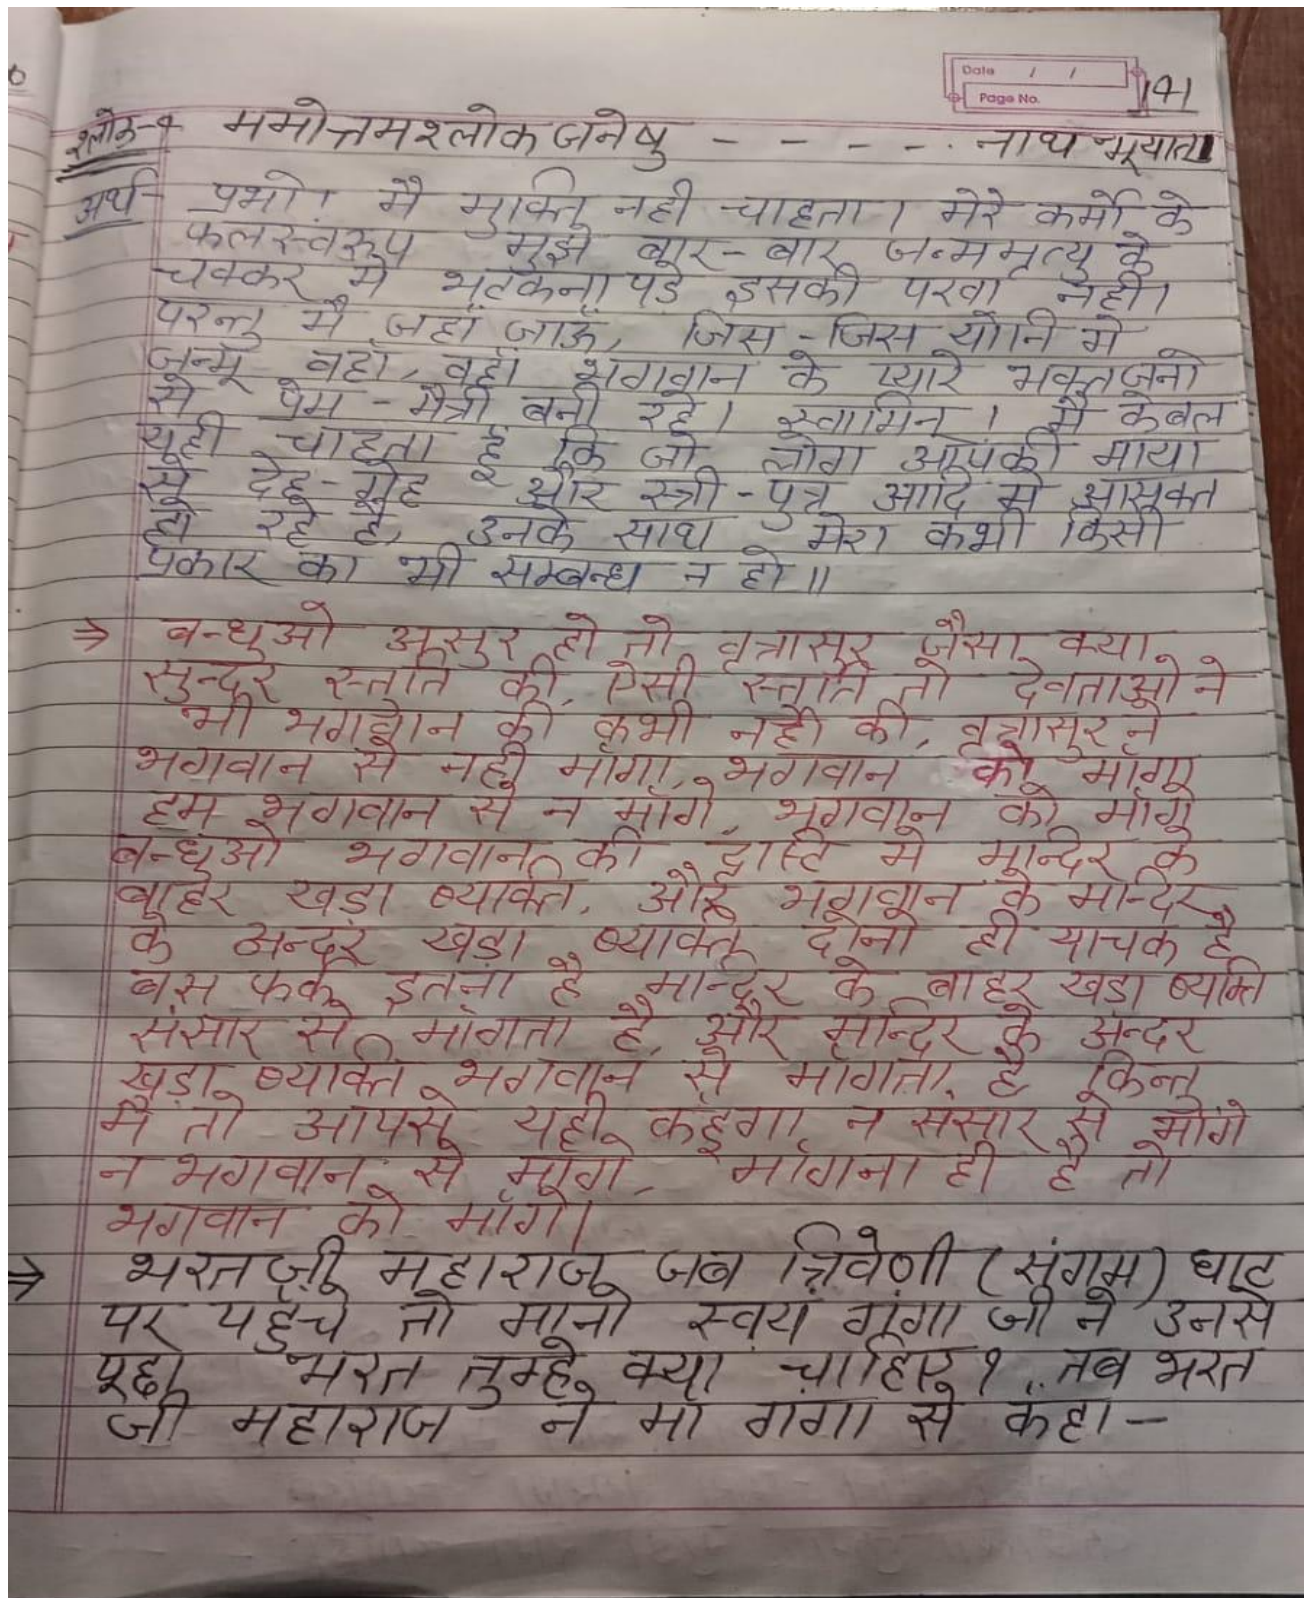 Date / /
Page No. 141
श्लोक-4 ममोत्तमश्लोक जनेषु - - - - - नाथ भूयात
अर्थ- प्रभो! मै मुक्ति नही चाहता। मेरे कर्मो के
फलस्वरूप मुझे बार-बार जन्ममृत्यु के
चक्कर मे भटकना पडे इसकी परवा नही।
परन्तु मै जहाँ जाऊँ, जिस-जिस योनि मे
जन्मू वहाँ, वहाँ भगवान के प्यारे भक्तजनो
से प्रेम-मैत्री बनी रहे। स्वामिन। मै केबल
यही चाहता हूँ कि जो लोग आपकी माया
से देह-गेह और स्त्री-पुत्र आदि मे आसक्त
हो रहे है, उनके साथ मेरा कभी किसी
प्रकार का भी सम्बन्ध न हो॥
⇒ बन्धुओ असुर हो तो वृत्रासुर जैसा क्या
सुन्दर स्तुति की, ऐसी स्तुति तो देवताओ ने
भी भगवान की कभी नही की, वृत्रासुर ने
भगवान से नही माँगा, भगवान को माँगा
हम भगवान से न माँगे, भगवान को माँगे
बन्धुओ भगवान की दृष्टि मे मन्दिर के
बाहर खडा व्यक्ति, और भगवान के मन्दिर
के अन्दर खडा व्यक्ति दोनो ही याचक है
बस फर्क इतना है मन्दिर के बाहर खडा व्यक्ति
संसार से माँगता है, और मन्दिर के अन्दर
खडा व्यक्ति भगवान से माँगता है किन्तु
मै तो आपसे यही कहूँगा न संसार से माँगे
न भगवान से माँगे, माँगना ही है तो
भगवान को माँगे।
⇒ भरत जी महाराज जब त्रिवेणी (संगम) घाट
पर पहुँचे तो मानो स्वयं गंगा जी ने उनसे
पूछा भरत तुम्हे क्या चाहिए? तब भरत
जी महाराज ने माँ गंगा से कहा-